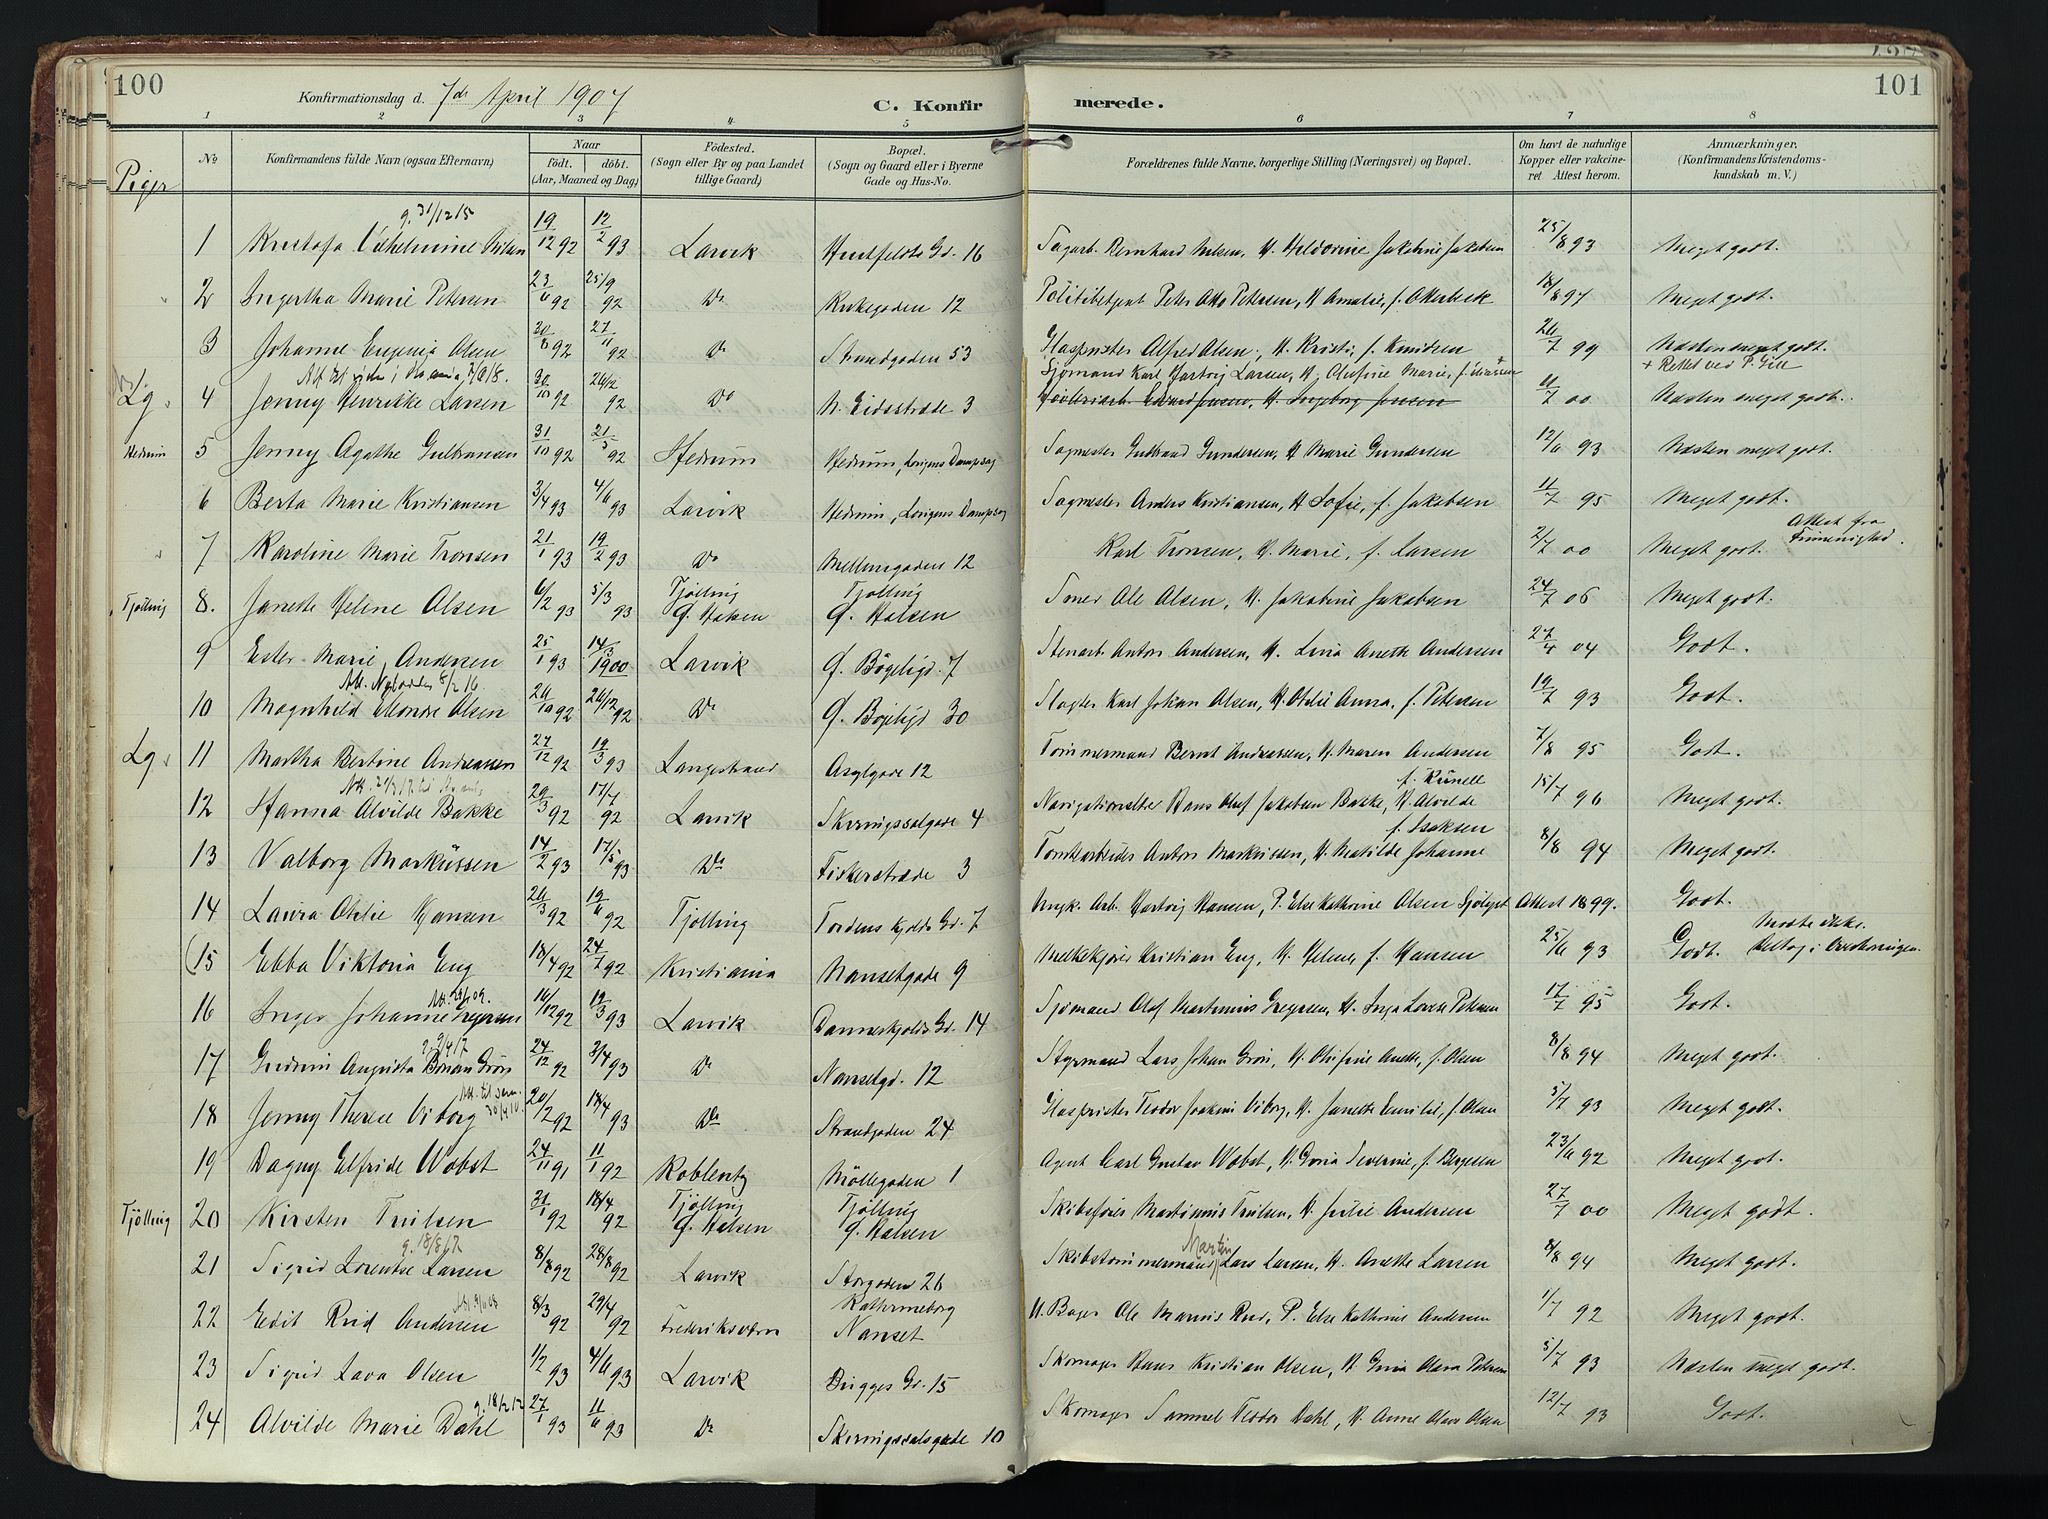 100
Konfirmationsdag d. 7de April 1907
C. Konfirmerede.
101
1 2 3 4 5 6 7 8
Piger
No
Konfirmandens fulde Navn (ogsaa Efternavn)
Naar født. døbt. (Aar, Maaned og Dag)
Fødested. (Sogn eller By og paa Landet tillige Gaard)
Bopæl. (Sogn og Gaard eller i Byerne Gade og Hus-No.
Forældrenes fulde Navne, borgerlige Stilling (Næringsvei) og Bopæl.
Om havt de naturlige Kopper eller vakcineret Attest herom.
Anmærkninger. (Konfirmandens Kristendomskundskab m. V.)
g. 31/12 15
1 Kristofa Vilhelmine Nilsen 19/12 92 12/2 93 Larvik Gd. 16 Sagarb. Bernhard Nilsen, H. Jakobine Jakobsen 25/8 93 Meget godt.
2 Ingertha Marie Petersen 23/6 92 25/9 92 Do Kirkegaden 12 Politibetjent Peter Otto Petersen, H. Amalie, f. Otterbeck 18/8 97 Meget godt.
3 Johanne Eugenie Olsen 30/8 92 27/11 92 Do Strandgaden 53 Glaspuster Alfred Olsen, H. Kristi, f. Knudsen 26/7 99 Næsten meget godt.
Sjømand Karl Hartvig Larsen, H. Olufine Marie, + Rettet ved P. Gill
Lg. 4 Jenny Henrikke Larsen 30/10 92 26/12 92 Do N. Eidsstræde 3 H. Ingeborg Jensen 11/7 00 Næsten meget godt.
Hedrum 5 Jenny Agathe Gulbransen 31/10 92 21/5 92 Hedrum Hedrum, Lovisens Dampsag Sagmester Gulbrand Gundersen, H. Marie Gundersen 12/6 93 Næsten meget godt.
6 Berta Marie Kristiansen 3/4 93 4/6 93 Larvik Hedrum, Lovisens Dampsag Sagmester Anders Kristiansen, H. Sofie, f. Jakobsen 11/7 95 Meget godt.
7 Karoline Marie Tronsen 21/1 93 19/2 93 Do Mellemgaden 12 Karl Tronsen, H. Marie, f. Larsen 2/7 00 Meget godt. Attest fra Frimenighed.
Tjølling 8. Janette Heline Olsen 6/2 93 5/3 93 Tjølling G. Halsen Tjølling G. Halsen Ole Olsen, H. Jakobine Jakobsen 24/7 06 Meget godt.
9 Ester Marie Andersen 25/1 93 14/3 1900 Larvik Ø. Bøgeligd. 7 Stenarb. Anton Andersen, H. Lina Anette Andersen 27/4 04 Godt.
10 Magnhild Olsen 26/10 92 26/12 92 Do Ø. Bøgeligd 30 Slagter Karl Johan Olsen, H. Otelie Anna, f. Petersen 19/7 93 Godt.
Lg. 11 Martha Bertine Andreasen 27/12 92 19/3 93 Langestrand Asylgade 12 Tømmermand Bernt Andreasen, H. Maren Andersen 7/8 95 Godt.
12 Hanna Alvilde Bakke 29/3 92 17/7 92 Larvik Skiringssalgade 4 Hans Olaf Jakobsen Bakke, H. Alvilde f. Runell 15/7 96 Meget godt.
13 Valborg Markussen 14/2 93 17/5 93 Do Fiskerstræde 3 Tomtearbeider Anton Markussen, H. Matilde Johanne f. Isaksen 8/8 94 Meget godt.
14 Laura Otilie Hansen 26/3 92 19/6 92 Tjølling Tordenskjolds Gd. 7 Ungk. Arb. Hartvig Hansen, P. Else Kathrine Olsen Attest 1899. Godt.
(15 Ebba Viktoria Eng 18/4 92 24/7 92 Kristiania Nansetgade 9 Melkekjører Kristian Eng, H. Helene f. Hansen 25/6 93 Godt. Maatte ikke deltag i Overhøringen.
16 Inger Johanne Gregersen 16/12 92 19/3 93 Larvik Danneskjolds Gd. 14 Sjømand Olaf Martinius Gregersen, H. Inga Lovise Petersen 17/7 95 Godt.
17 Gudrun Augusta Grøn 24/12 92 3/4 93 Do Nansetgd. 12 Styrmand Lars Johan Grøn, H. Olufine Anette, f. Olsen 8/8 94 Meget godt.
18 Jenny Therese Viborg 20/12 92 18/4 93 Do Strandgaden 24 Glaspuster Teodor Joakim Viborg, H. Janette Emilie, f. Olsen 5/7 93 Meget godt.
19 Dagny Elfride Wobst 24/11 91 11/1 92 Koblentz Møllegaden 1 Agent Carl Gustav Wobst, H. Severine, f. Bergesen 23/6 92 Meget godt.
Tjølling 20 Kirsten Truilsen 31/1 92 18/4 92 Tjølling G. Halsen Tjølling G. Halsen Skibsfører Martinius Truilsen, H. Julie Andersen 27/7 00 Meget godt.
g. 18/8 17
21 Sigrid Lorentse Larsen 8/8 92 28/8 92 Larvik Storgaden 26 Skibstømmermand Martin Lars Larsen, H. Anette Larsen 8/8 94 Meget godt.
22 Edit Rud Andersen 8/3 92 29/4 92 Frederiksværn Kathrineborg Nanset U. Bager Ole Marius Ruud, P. Else Kathrine Andersen 1/7 92 Meget godt.
23 Sigrid Lava Olsen 1/2 93 4/6 93 Larvik Brigges Gd. 15 Skomager Hans Kristian Olsen, H. Olava Petersen 5/7 93 Næsten meget godt.
g. 18/2 12
24 Alvilde Marie Dahl 27/1 93 11/6 93 Do Skiringssalsgade 10 Skomager Samuel Teodor Dahl, H. Anne Olava Olsen 12/7 93 Godt.